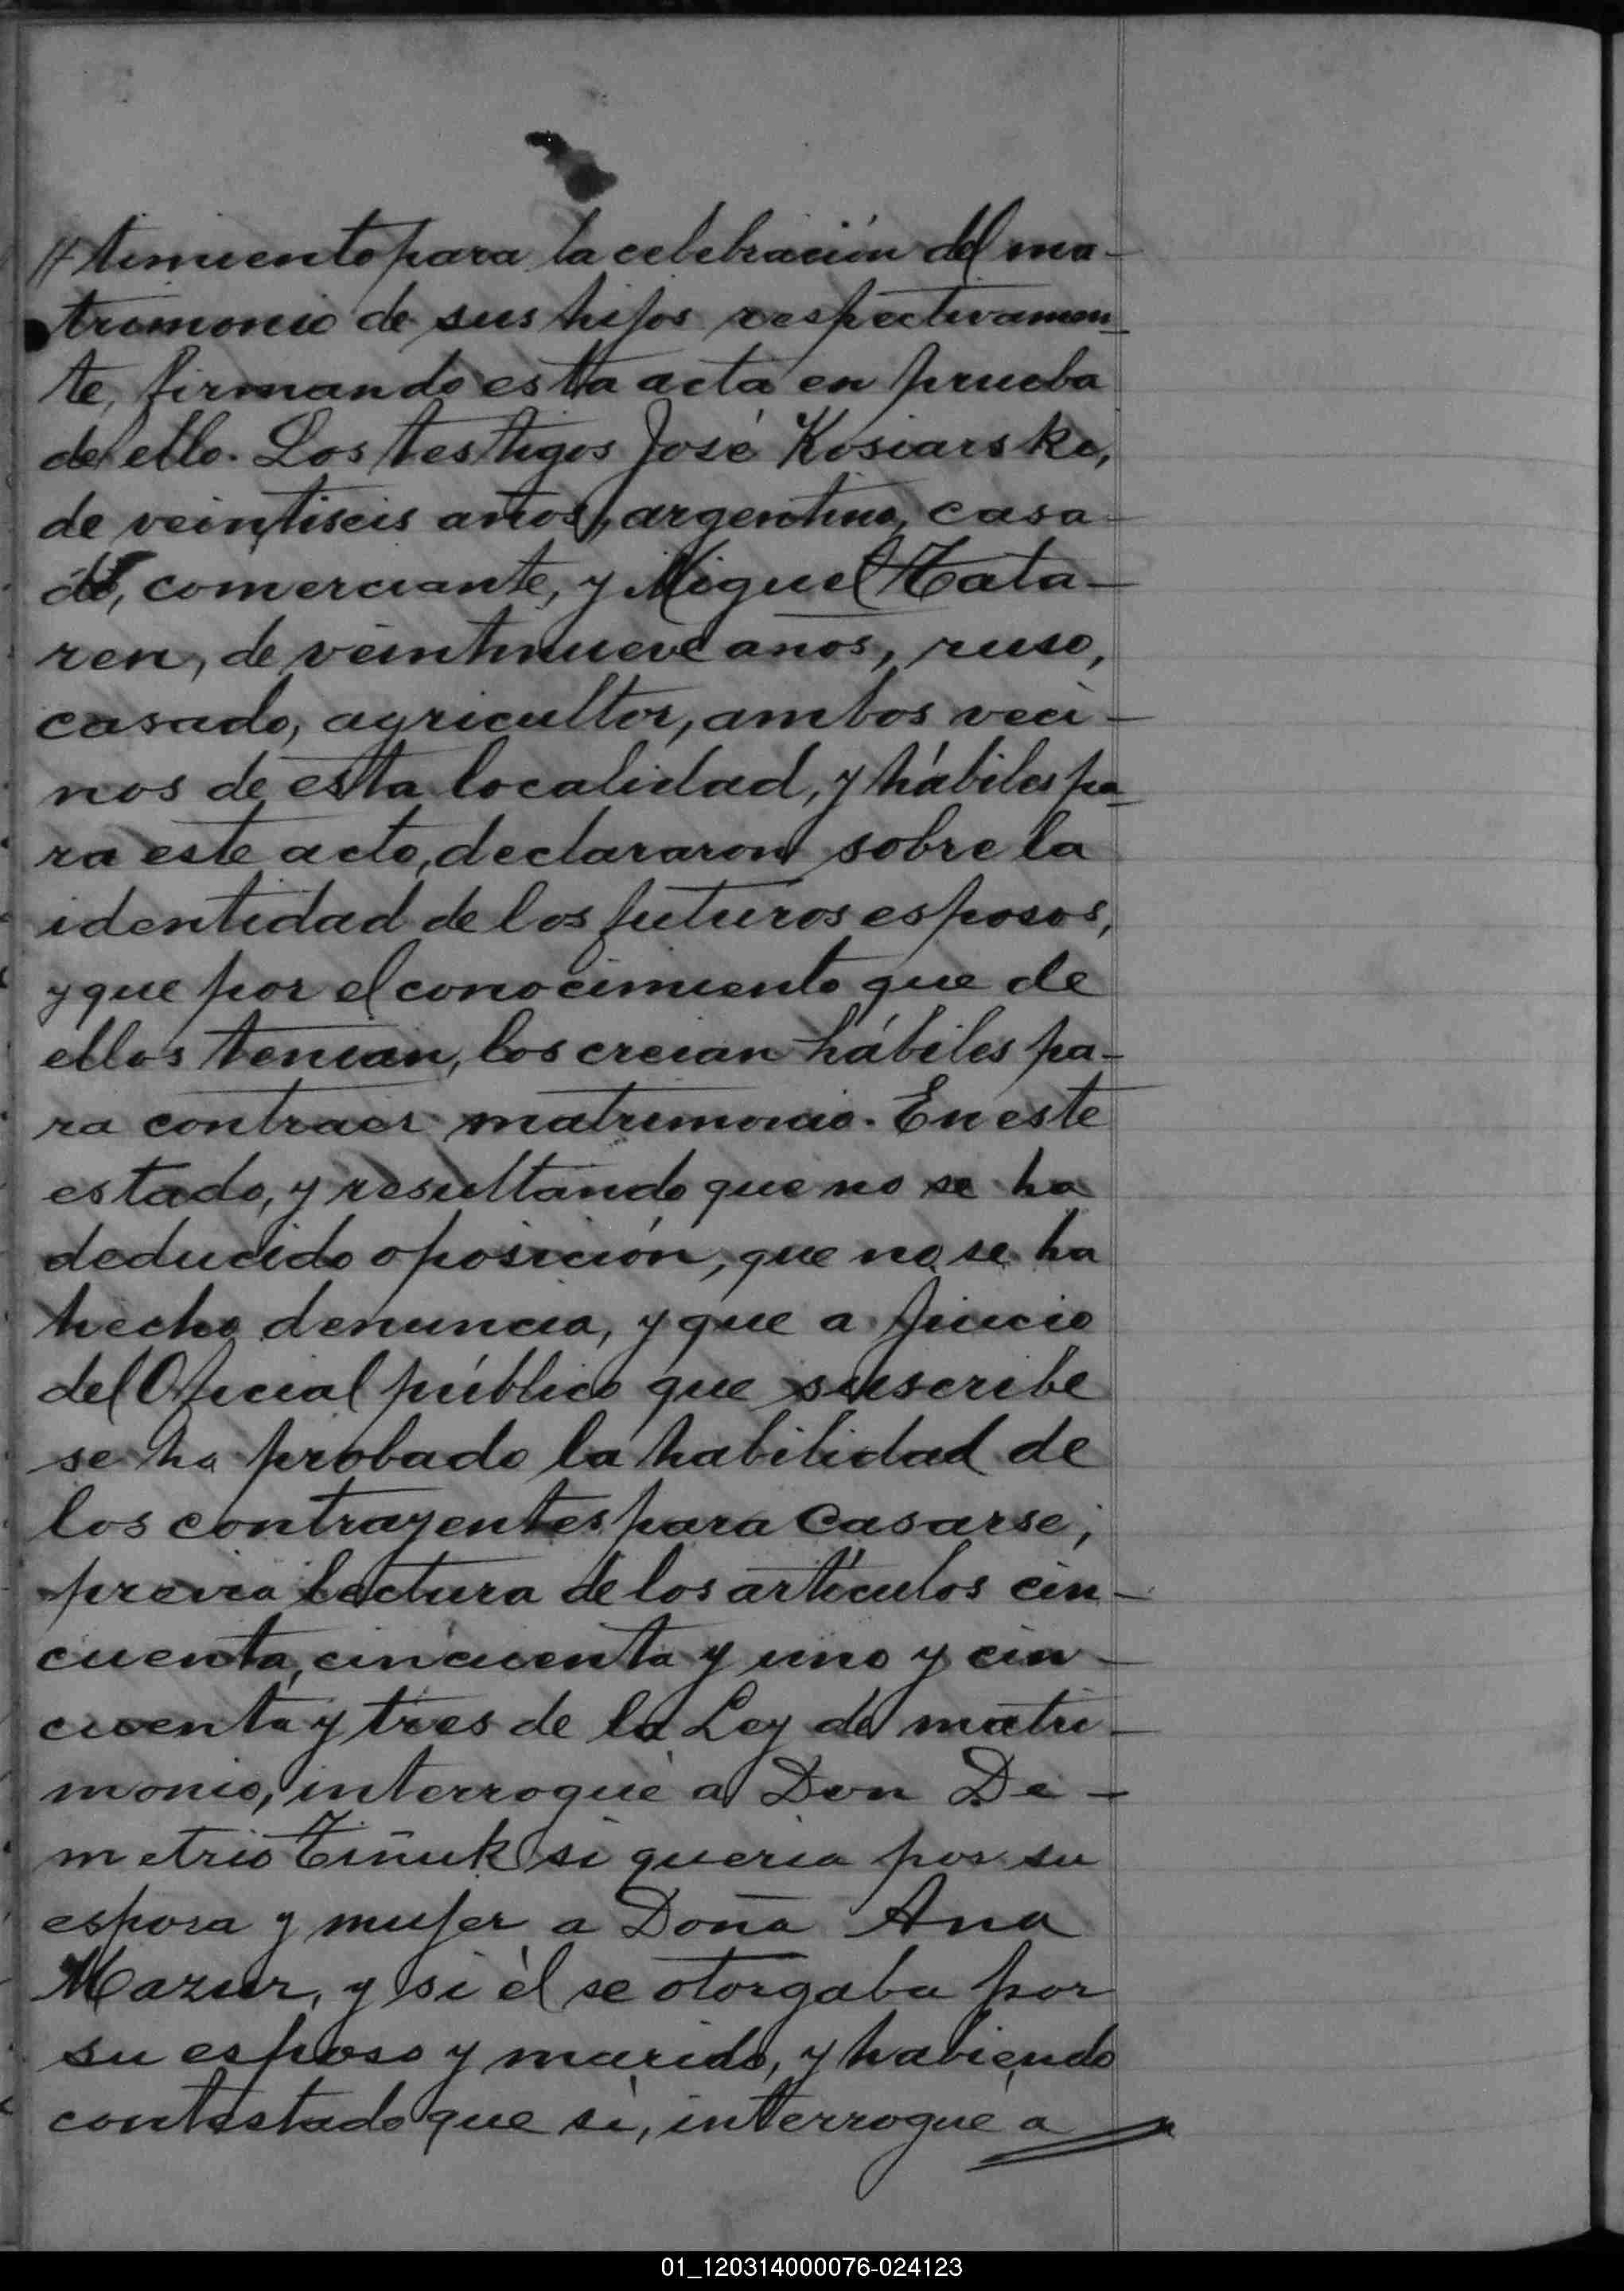 // timiento para la celebración del ma-
trimonio de sus hijos respectivamen-
te, firmando esta acta en prueba
de ello. Los testigos José Kosiarski,
de veintiseis años, argentino, casa-
do, comerciante, y Miguel Tata-
ren, de veintinueve años, ruso,
casado, agricultor, ambos veci-
nos de esta localidad, y hábiles pa-
ra este acto, declararon sobre la
identidad de los futuros esposos,
y que por el conocimiento que de
ellos tenian, los creian hábiles pa-
ra contraer matrimonio. En este
estado, y resultando que no se ha
deducido oposición, que no se ha
hecho denuncia, y que a juicio
del Oficial público que suscribe
se ha probado la habilidad de
los contrayentes para casarse;
previa lectura de los artículos cin-
cuenta, cincuenta y uno y cin-
cuenta y tres de la Ley de matri-
monio, interrogué a Don De-
metrio Tiñuk si queria por su
esposa y mujer a Doña Ana
Mazur, y si él se otorgaba por
su esposo y marido, y habiendo
contestado que sí, interrogué a
01_120314000076-024123